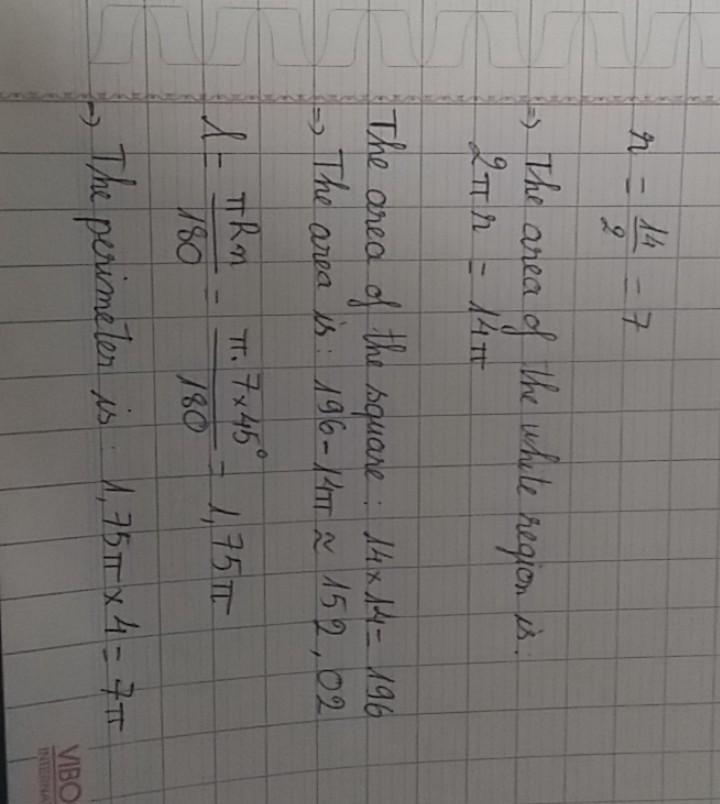 r = 14/2 = 7
=> The area of the white region is:
2πr = 14π
The area of the square: 14×14 = 196
=> The area is: 196 - 14π ≈ 152,02
l = πRn/180 = π.7×45°/180 = 1,75π
=> The perimeter is: 1,75π × 4 = 7π
VIBO
INTERNA